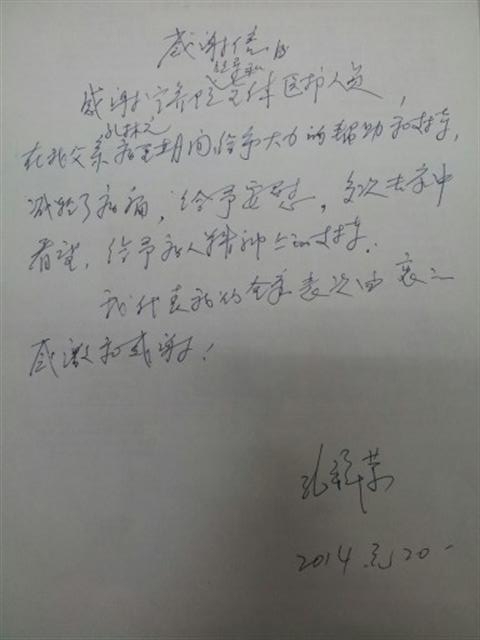 感谢信
感谢宁养院全体医护人员，
在我父亲病重期间给予大力的帮助和支持，
减轻了病痛，给予安慰，多次去家中
看望，给予病人精神上的支持。
我代表我的全家表示由衷之
感激和感谢！
2014.3.20